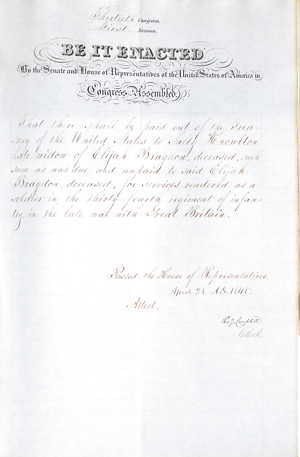 Thirtieth Congress,
First Session.
BE IT ENACTED
By the Senate and House of Representatives of the United States of America in
Congress Assembled,
That there shall be paid out of the Trea-
sury of the United States to Sally Knowlton
late widow of Elijah Bragdon, deceased, such
sum as was due and unpaid to said Elijah
Bragdon, deceased, for services rendered as a
soldier in the thirty fourth regiment of infan-
try, in the late war with Great Britain.
Passed the House of Representatives,
April 28. A.D. 1848.
Attest.
Clerk